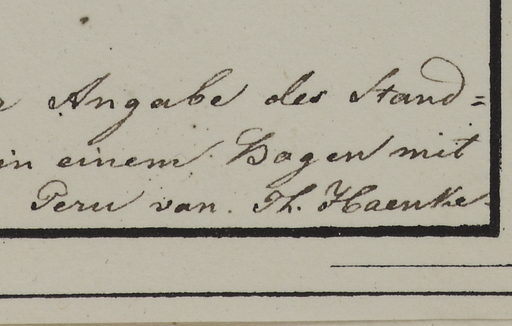 Angabe des Stand=
in einem Bogen mit
Peru van. Th. Haenke